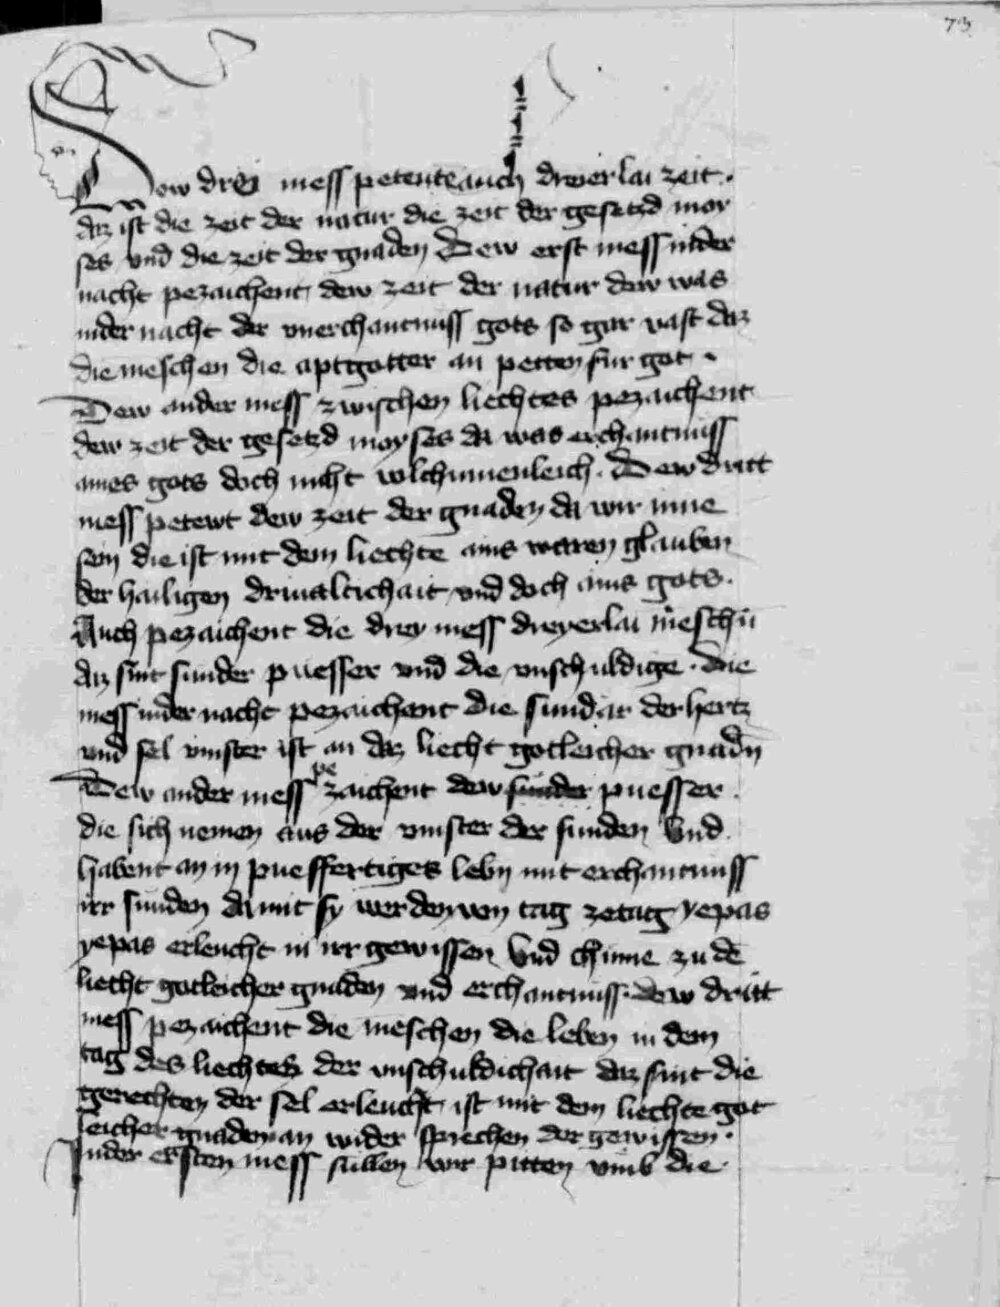 73
Dew drei mess petentt auch dreierlai zeit.
daz ist die zeit der natur die zeit der gesetzd moy
ses vnd die zeit der gnaden Dew erst mess in der
nacht pezaichent dew zeit der natur dew was
inder nacht der vnerchantnuss gots so gar vast daz
die meschen die aptgotter an petten fur got .
Dew ander mess zwischen liechtes pezaichent
dew zeit der gesetzd moyses da was erchantnuss
aines gots doch nicht volchumenleich . Dew dritt
mess petewt dew zeit der gnaden da wir inne
sein die ist mit dem liechte ains waren glauben
der hailigen driualtichait vnd doch ains gots .
Auch pezaichent die drey mess dreyerlai meschn
daz sint sunder puesser vnd die vnschuldige . Die
mess inder nacht pezaichent die sundar der hertz
vnd sel vinster ist an daz liecht gotleicher gnadn
Dew ander mess pezaichent dew sunder puesser .
die sich nemen aus der vinster der sunden Vnd
habent an in puessertiges lebn mit erchantnuss
irr sunden da mit sy werden von tag ze tag yepas
yepas erleucht in irr gewissen Vnd chume zu de
liecht gotleicher gnaden vnd erchantnuss . dew dritt
mess pezaichent die meschen die leben in dem
tag des liechtes der vnschuldichait daz sint die
gerechten der sel erleucht ist mit dem liechte got
leicher gnaden an wider sprechen der gewissen .
Inder ersten mess sullen wir pitten vmb die